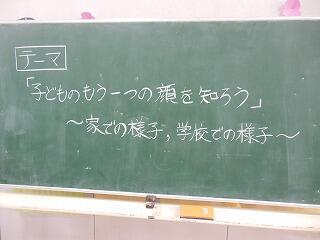 テーマ
「子どものもう一つの顔を知ろう」
～家での様子,学校での様子～